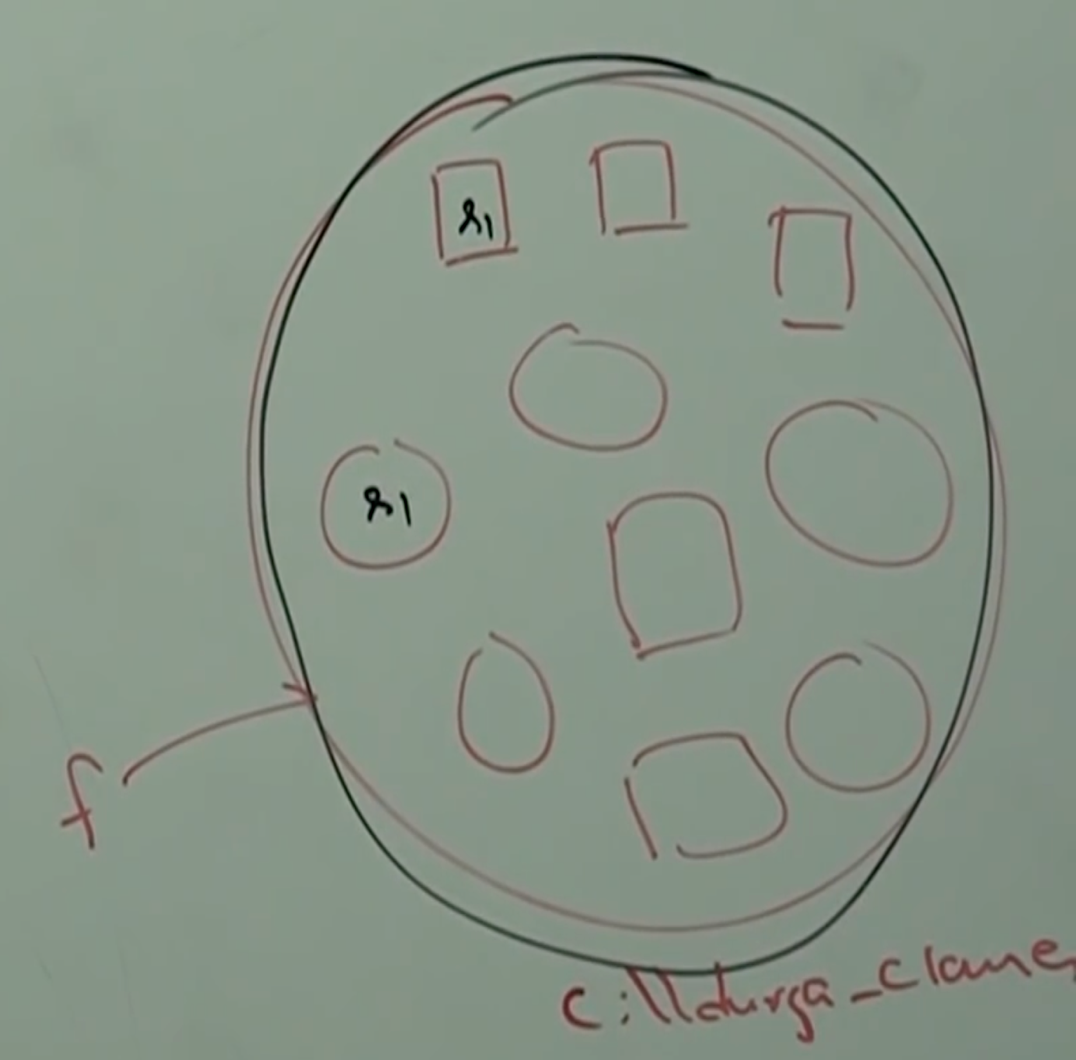 r1
r1
f
C:\\durga_classes